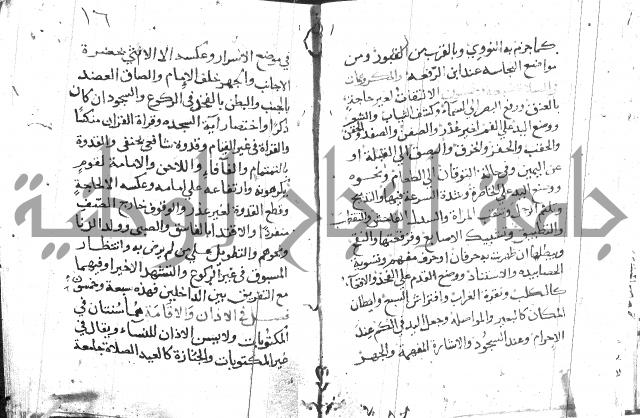 كما جزم به النووي وبالقرب من القبور ومن
مواضع النجاسة عند ابن الرفعة والمكروهات
الالتفات لغير حاجة
بالعنق ورفع البصر إلى السماء وكف الثياب والشعر
ووضع اليد على الفم لغير عذر والصفن والصفد
والحقب والحفز والخرق والبصق إلى القبلة او
عن اليمين وفي حالة التوقان إلى الطعام ونحوه
ووضع اليد على الخاصرة وشدة السرعة فيها والتدبيح
المرأة والسدل
وتشبيك الاصابع وفرقعتها والنفخ
ان ظهر به حرفان او حرف مفهم وتسوية
الحصا بيده والاستناد ووضع القدم على
كالكلب ونقرة الغراب وافتراش السبع وايطان
المكان كالبعير والمواصلة وجعل اليد في الكم عند
الاحرام وعند السجود والاشارة المفهمة والجهر
١٦
في موضع الاسرار وعكسه الا الانثى بحضرة
الاجانب والجهر خلف الإمام والصاق العضد
بالجنب والبطن بالفخذ في الركوع والسجود ان كان
ذكرا واختصار اية السجدة وقراة القران منكسا
والقراة في غير القيام وقدوة شافعي بحنفي والقدوة
بالتمتام والفأفاء واللاحن والامامة لقوم
يكرهونه وارتفاعه على امامه وعكسه الا لحاجة
وقطع القدوة لغير عذر والوقوف خارج الصف
منفردا والاقتداء بالفاسق والصبي وولد الزنا
ونحوهم والتطويل على من لم يرض به وانتظار
المسبوق في غير الركوع والتشهد الاخير او فيهما
مع التفريق بين الداخلين فهذه سبعة وخمسون
فصل في الاذان والاقامة هما سنتان في
المكتوبات ولا يسن الاذان للنساء ويقال في
غير المكتوبات والجنازة كالعيد الصلاة جامعة
جامعة النجاح الوطنية